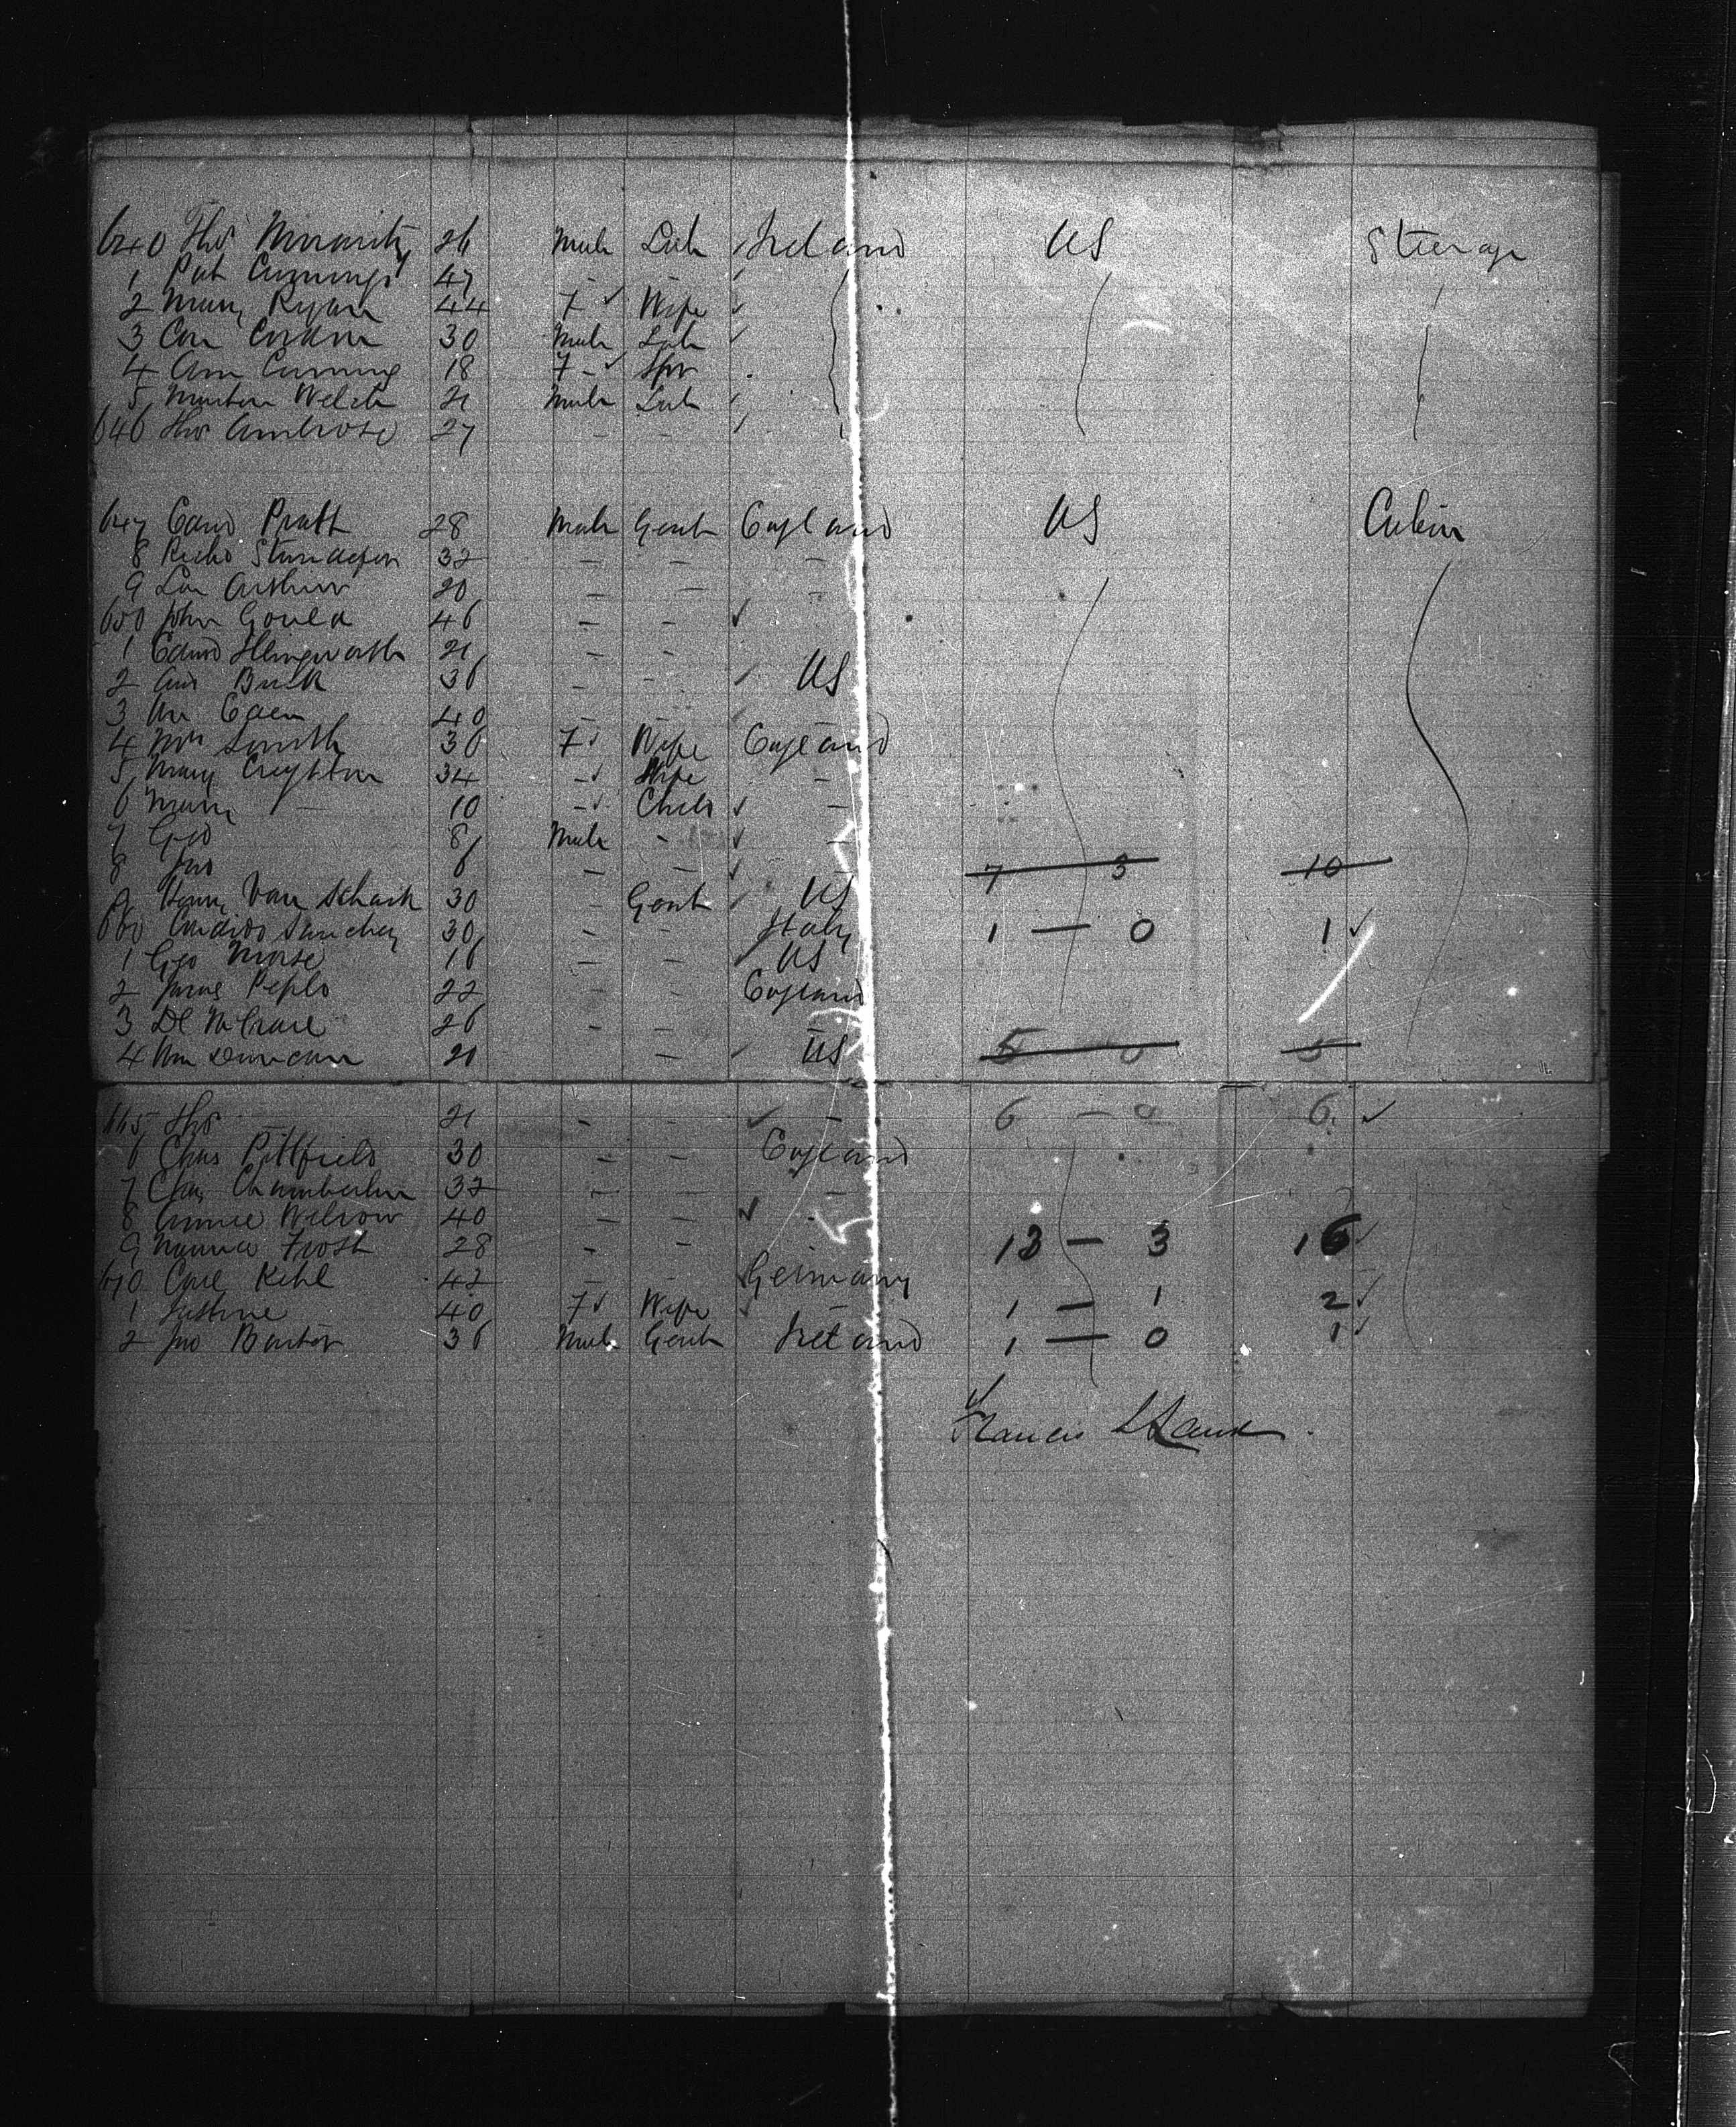 640 Thos Moriarity 26 Male Lab Ireland US Steerage
1 Pat Cummings 47 -
2 Mary Ryan 44 F Wife
3 Con 30 Male Lab
4 Ann 18 F - Spr
5 Martin Welch 21 Male Lab
646 Thos Ambrose 27 - -
647 Edwd Pratt 28 Male Gent England US Cabin
8 Richd 32 - - -
9 Arthur 20 - - -
650 John Gould 46 - -
1 Edwd Illingworth 21 - -
2 36 - - US
3 Wm 40 - - -
4 Mrs Smith 36 F Wife England
5 Mary Creighton 34 - Wife -
6 Mary — 10 - Child -
7 Geo 8 Male - -
8 Jno 6 - - 7 — 3 10
9 Henry Van Schaick 30 - Gent US
660 Candido Sanchez 30 - - Italy 1 — 0 1
1 Geo Morse 16 - - US
2 James Peplo 22 - - England
3 26 - - -
4 Wm Duncan 21 - US 5 — 0 5
665 Thos — 21 - - - 6 — 0 6
6 Chas Pittfield 30 - - England
7 Chas Chamberlin 32 - - -
8 Wilson 40 - - -
9 Maurice Frost 28 - - 13 — 3 16
670 Carl Kehl 42 - - Germany
1 Justine 40 F Wife - 1 — 1 2
2 Jno Barton 36 Male Gent Ireland 1 — 0 1
Francis